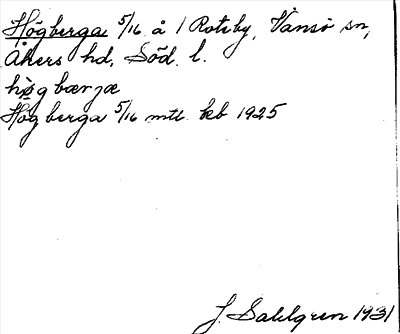 Högberga 5/16 å 1 Rotsby, Vansö sn,
Åkers hd, Söd. l.
hö̀gbærjæ
Högberga 5/16 mtl kb 1925
J. Sahlgren 1931